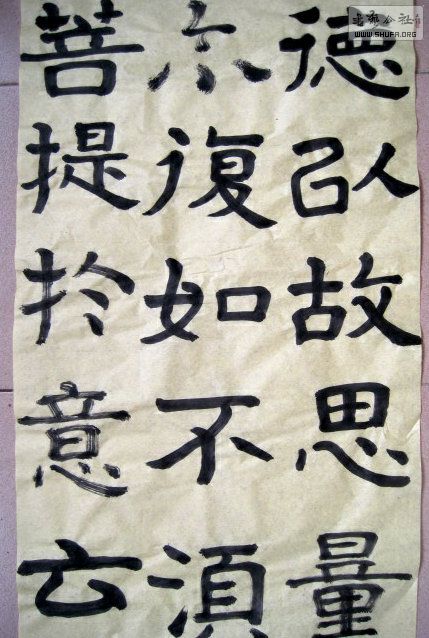 德以故思量
亦復如不須
菩提於意云
書藝公社
WWW.SHUFA.ORG